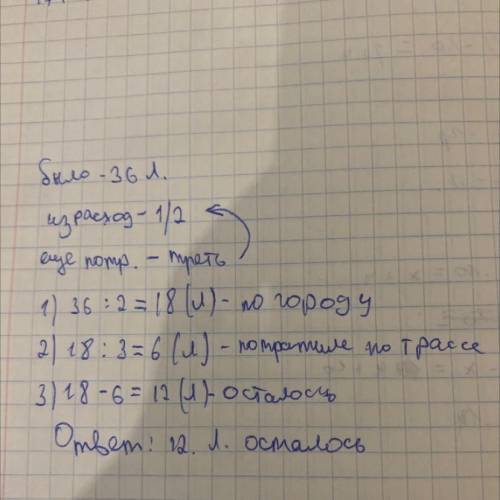 было - 36 л.
израсход - 1/2
еще потр. - треть
1) 36 : 2 = 18 (л) - по городу
2) 18 : 3 = 6 (л) - потратили по трассе
3) 18 - 6 = 12 (л) - осталось
Ответ: 12. л. осталось